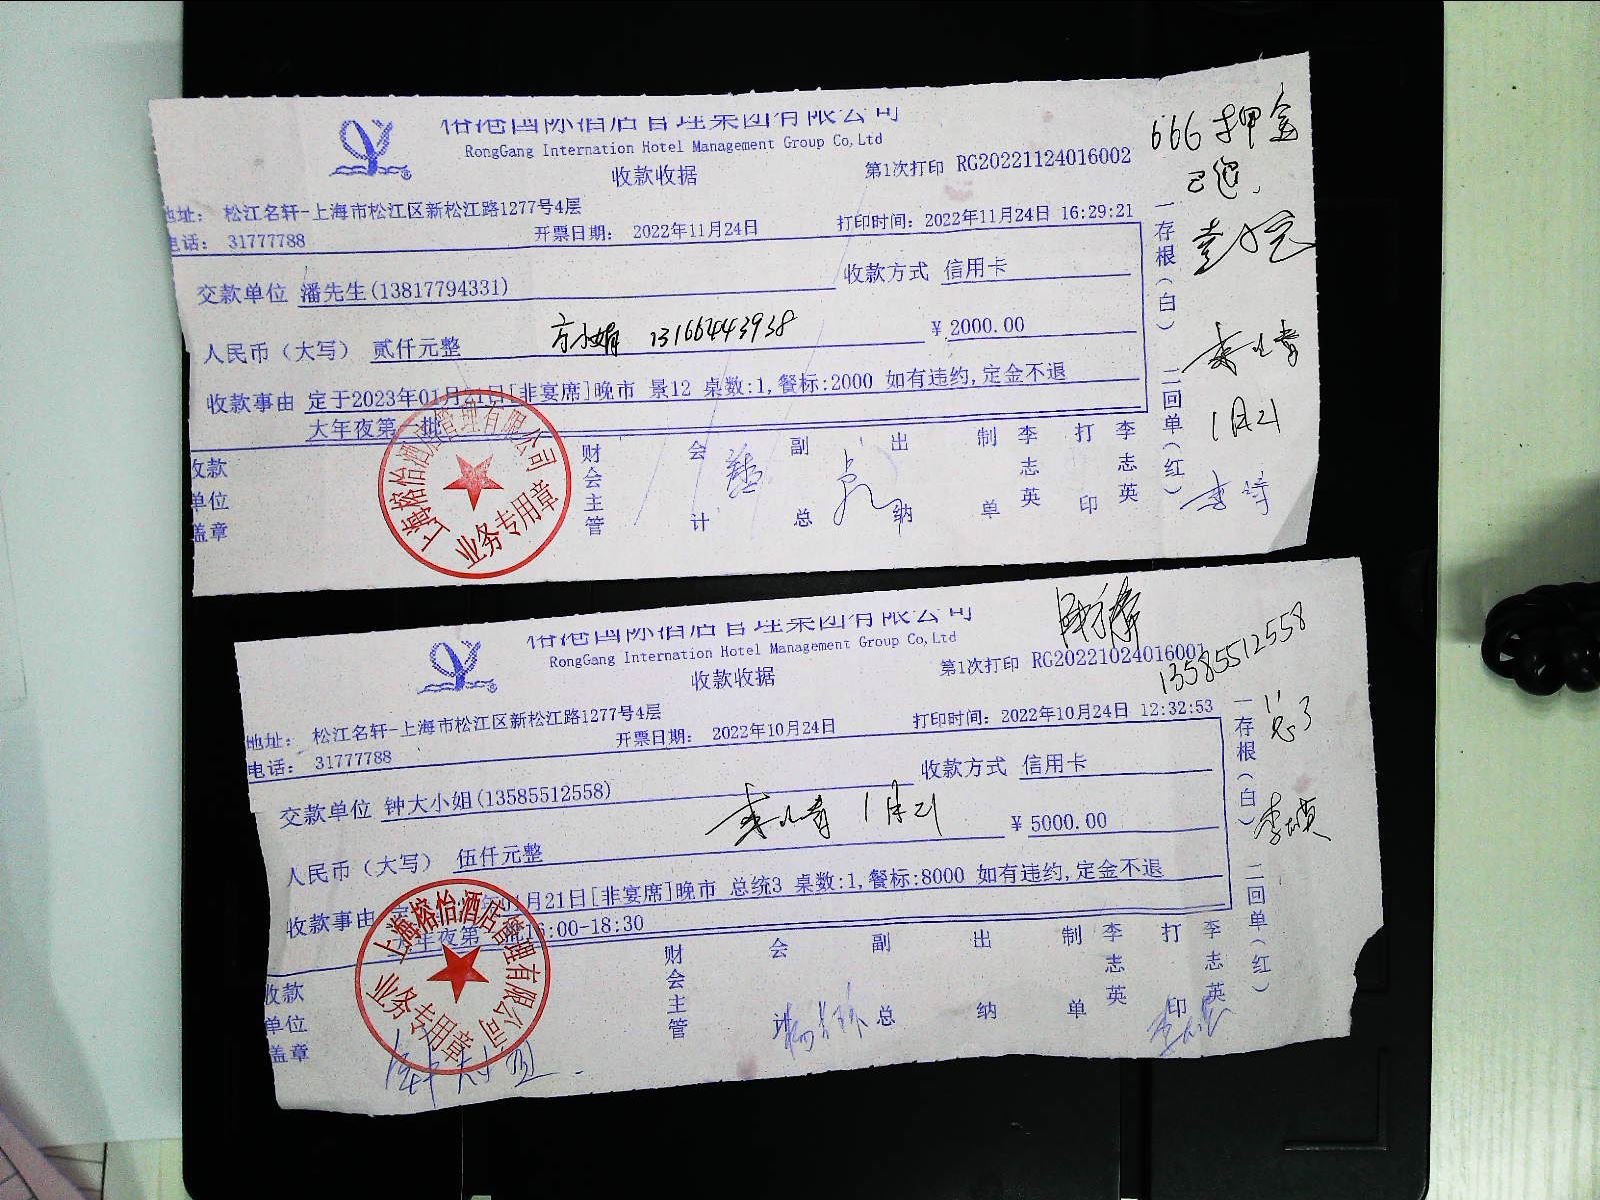 裕港国际酒店管理集团有限公司
RongGang Internation Hotel Management Group Co,Ltd
收款收据
第1次打印 RG20221124016002
666押金
已退.
地址： 松江名轩-上海市松江区新松江路1277号4层
电话： 31777788
开票日期： 2022年11月24日
打印时间：2022年11月24日 16:29:21
交款单位 潘先生(13817794331)
收款方式 信用卡
人民币（大写） 贰仟元整
方小娟 13166443938
¥ 2000.00
收款事由 定于2023年01月21日[非宴席]晚市 景12 桌数:1,餐标:2000 如有违约,定金不退
大年夜第一批
收款单位盖章
财会主管
会计
副总
出纳
制单
李志英
打印
李志英
一存根（白） 二回单（红）
1月21
上海榕怡酒店管理有限公司
业务专用章
裕港国际酒店管理集团有限公司
RongGang Internation Hotel Management Group Co,Ltd
收款收据
第1次打印 RG20221024016001
13585512558
地址： 松江名轩-上海市松江区新松江路1277号4层
电话： 31777788
开票日期： 2022年10月24日
打印时间：2022年10月24日 12:32:53
交款单位 钟大小姐(13585512558)
收款方式 信用卡
人民币（大写） 伍仟元整
1月21
¥ 5000.00
收款事由 定 年01月21日[非宴席]晚市 总统3 桌数:1,餐标:8000 如有违约,定金不退
大年夜第一批16:00-18:30
收款单位盖章
财会主管
会计
副总
出纳
制单
李志英
打印
李志英
一存根（白） 二回单（红）
上海榕怡酒店管理有限公司
业务专用章